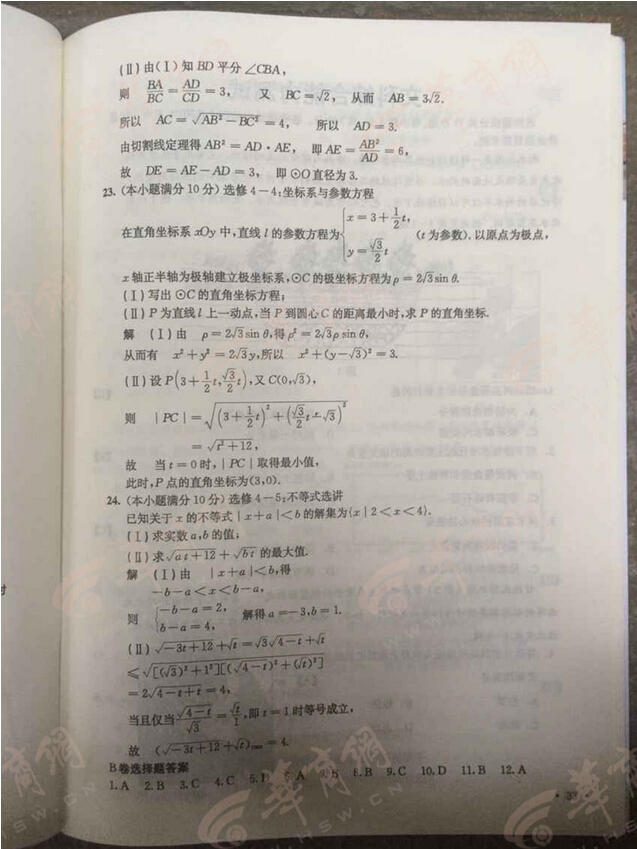 (Ⅱ)由(Ⅰ)知 BD 平分∠CBA,
则 BA/BC = AD/CD = 3, 又 BC=√2, 从而 AB=3√2.
所以 AC=√(AB²-BC²)=4, 所以 AD=3.
由切割线定理得 AB²=AD·AE, 即 AE=AB²/AD=6,
故 DE=AE-AD=3, 即⊙O直径为 3.
23. (本小题满分 10 分) 选修 4-4:坐标系与参数方程
在直角坐标系 xOy 中,直线 l 的参数方程为{x=3+1/2 t, y=√3/2 t (t 为参数). 以原点为极点,
x 轴正半轴为极轴建立极坐标系,⊙C 的极坐标方程为 ρ=2√3 sin θ.
(Ⅰ)写出⊙C 的直角坐标方程;
(Ⅱ)P 为直线 l 上一动点,当 P 到圆心 C 的距离最小时,求 P 的直角坐标.
解 (Ⅰ)由 ρ=2√3 sin θ,得 ρ²=2√3 ρ sin θ,
从而有 x²+y²=2√3 y,所以 x²+(y-√3)²=3.
(Ⅱ)设 P(3+1/2 t, √3/2 t),又 C(0,√3),
则 |PC|=√((3+1/2 t)²+(√3/2 t-√3)²)
=√(t²+12),
故 当 t=0 时,|PC|取得最小值,
此时,P 点的直角坐标为(3,0).
24. (本小题满分 10 分) 选修 4-5:不等式选讲
已知关于 x 的不等式|x+a|<b 的解集为{x|2<x<4}.
(Ⅰ)求实数 a,b 的值;
(Ⅱ)求 √(at+12)+√(bt) 的最大值.
解 (Ⅰ)由 |x+a|<b,得
-b-a<x<b-a,
则 {-b-a=2, b-a=4, 解得 a=-3,b=1.
(Ⅱ)√(-3t+12)+√t=√3 √(4-t)+√t
≤√([(√3)²+1²][(√(4-t))²+(√t)²])
=2√(4-t+t)=4,
当且仅当 √(4-t)/√3=√t/1,即 t=1 时等号成立,
故 (√(-3t+12)+√t)max=4.
B卷选择题答案
1. A 2. B 3. C 4. C 5. D 6. A 7. B 8. B 9. C 10. D 11. B 12. A
华育网
WWW.HSW.CN